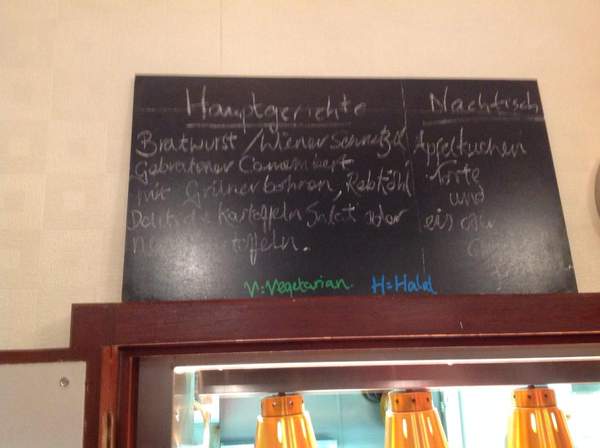 Hauptgerichte
Bratwurst / Wiener Schnetzel
Gebratoner Camembert
mit Grünerbohnen, Rotkohl
Kartoffeln Salat oder
Nachtisch
Apfelkuchen
Torte
und
eis oder
V=Vegetarian H=Halal